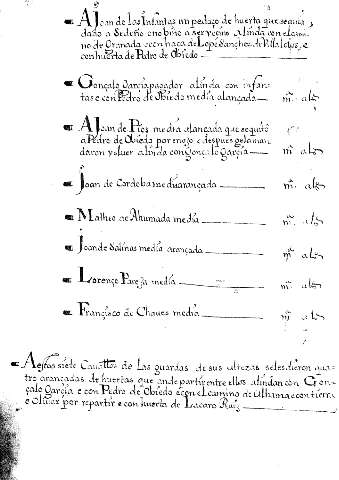 A Joan de los Infantes un pedaço de huerta que se quitó
dado a Sedeño e no bino a ser vezino alinda con el cami
no de Granada e con haça de Lope Sanchez de Villa e
con huerta de Pedro de Obiedo
Gonçalo Garçia pasador alinda con infan
tas e con Pedro de Obiedo media alançada mª alª
A Joan de Pies media alançada que se quitó
a Pedro de Obiedo por enojo e despues ge la man
daron volver alinda con Gonçalo Garçia mª alª
Joan de Cordoba media arançada mª alª
Matheo de Ahumada media mª alª
Joan de Salinas media arançada mª alª
Lorenço Pareja media mª alª
Francisco de Chaues media mª alª
A estas siete Cauallos de las guardas de sus altezas seles dieron qua
tro arançadas de huertas que ande partir entre ellos alindan con Gon
çalo Garçia e con Pedro de Obiedo e con el camino de Alhama e con tierra
e olivar por repartir e con huerta de Lazaro Ruiz